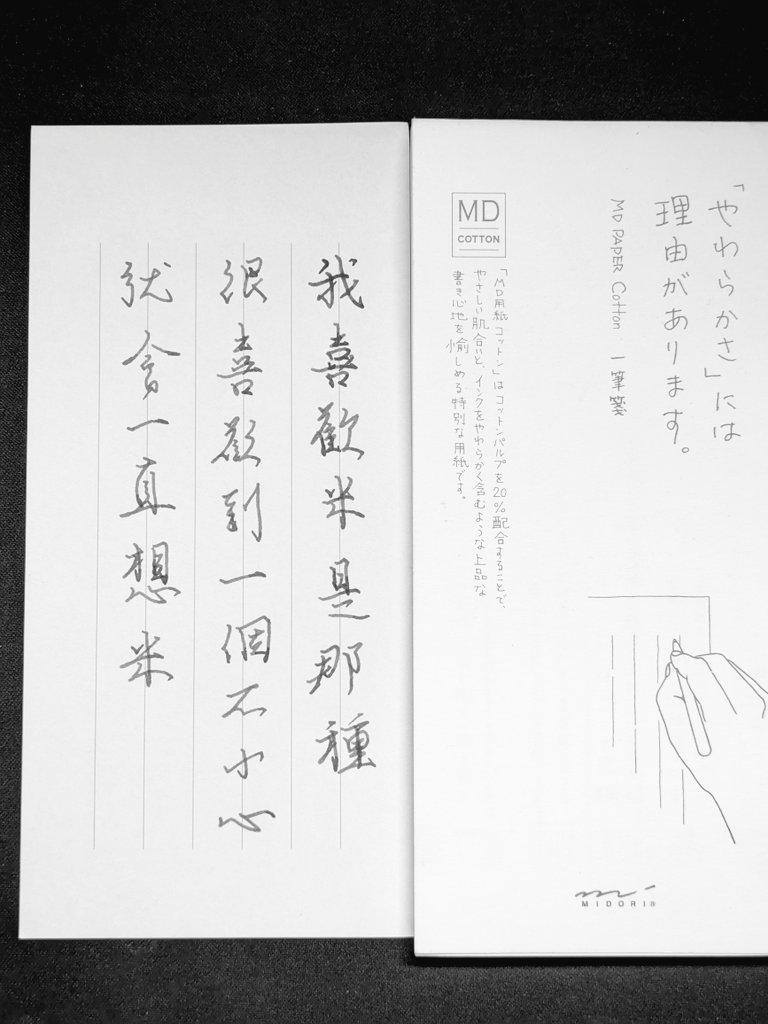 我喜歡米是那種
很喜歡到一個不小心
就會一直想米
「やわらかさ」には
理由があります。
MD PAPER Cotton 一筆箋
MD
COTTON
「MD用紙コットン」はコットンパルプを20%配合することで、
やさしい肌合いと、インクをやわらかく含むような上品な
書き心地を愉しめる特別な用紙です。
MIDORI®